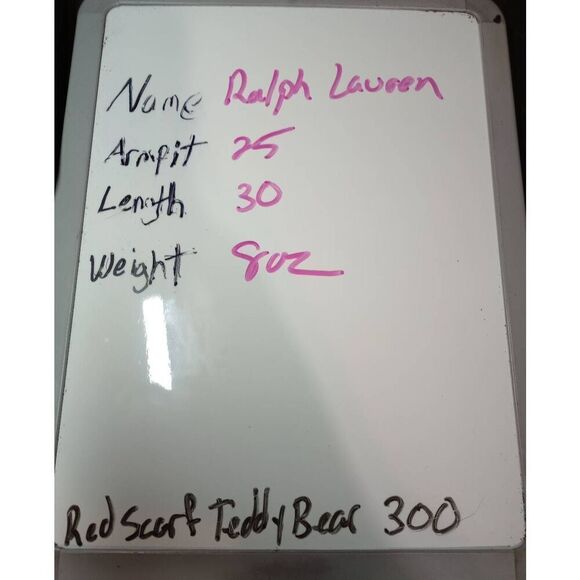 Name Ralph Lauren
Armpit 25
Length 30
Weight 8oz
Red Scarf Teddy Bear 300